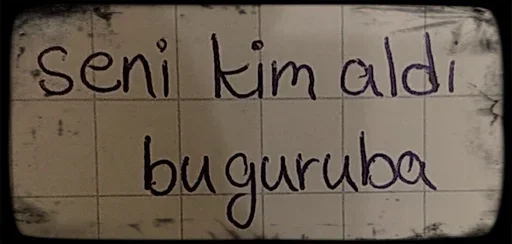 seni kim aldı
buguruba